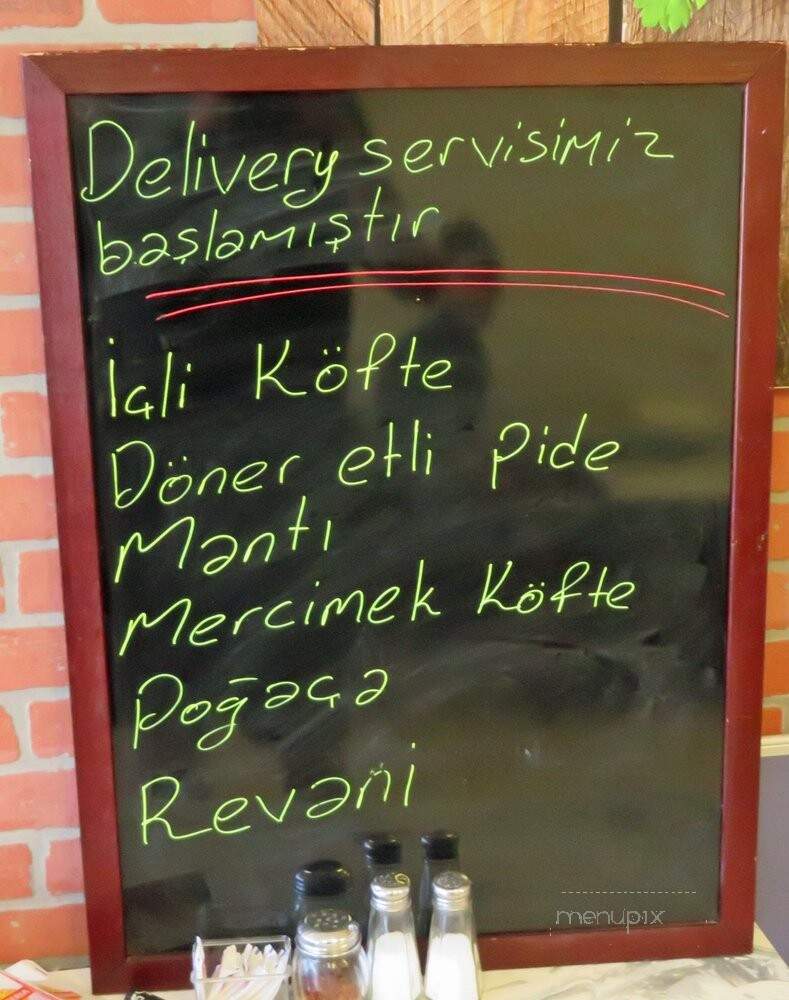 Delivery servisimiz
başlamıştır
İçli Köfte
Döner etli pide
Mantı
Mercimek Köfte
Poğaça
Revani
menupix